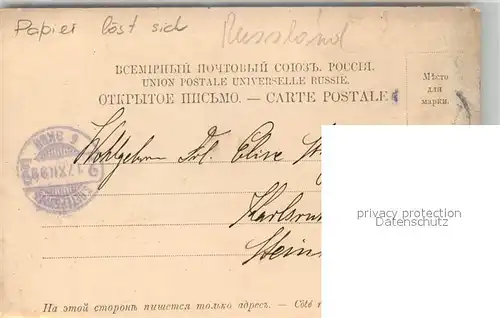 Papier löst sich
Russland
ВСЕМІРНЫЙ ПОЧТОВЫЙ СОЮЗЪ. РОССІЯ.
UNION POSTALE UNIVERSELLE RUSSIE.
ОТКРЫТОЕ ПИСЬМО. — CARTE POSTALE
Мѣсто
для
марки.
Wohlgeboren Frl. Elise
Karlsru
Stein
privacy protection
Datenschutz
На этой сторонѣ пишется только адресъ. — Côté